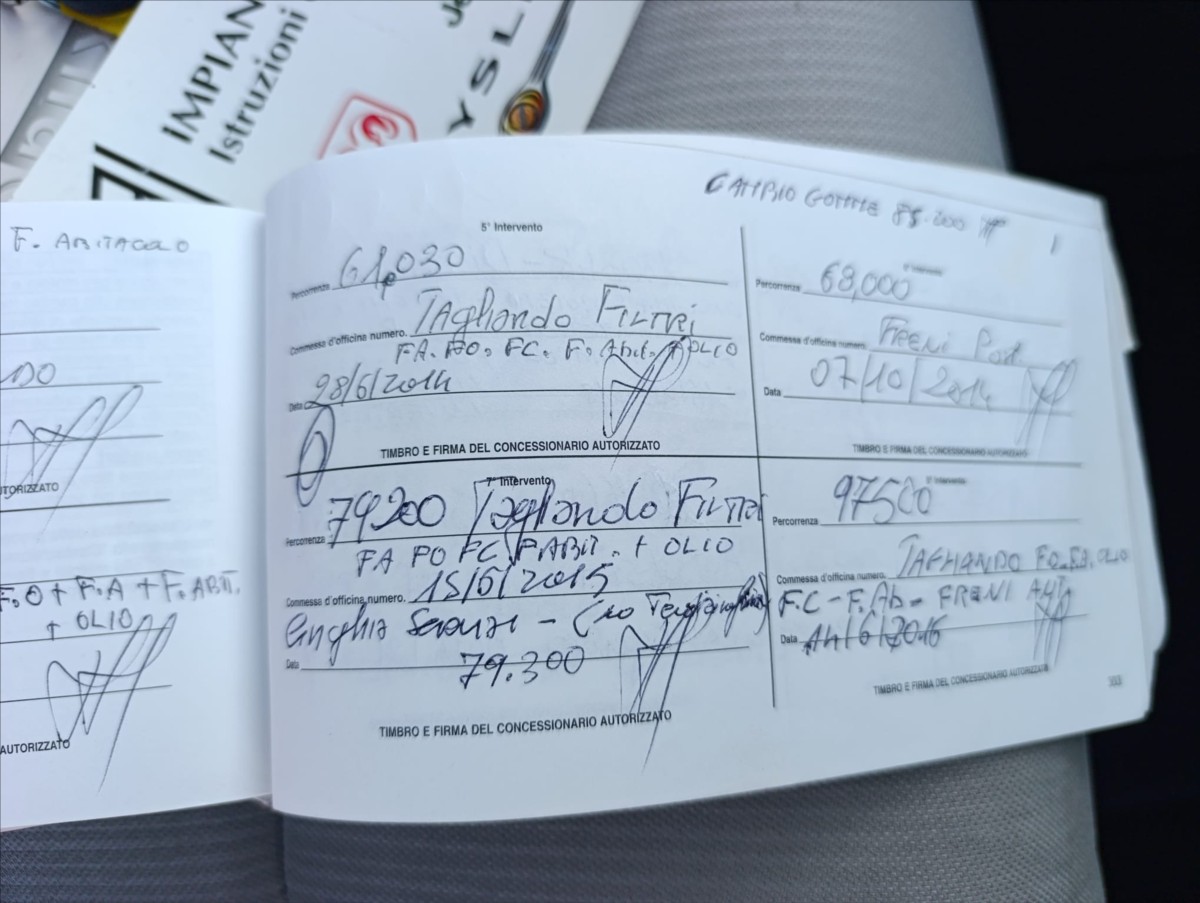 IMPIAN
Istruzioni
YSL
F. ABITACOLO
DO
TORIZZATO
F.O + F.A + F. ABIT.
+ OLIO
AUTORIZZATO
CAMBIO GOMME
5° Intervento
Percorrenza 61,030
Commessa d'officina numero. Tagliando FILTRI
FA. FO. FC. F. Abit. + OLIO
Data 28/6/2014
TIMBRO E FIRMA DEL CONCESSIONARIO AUTORIZZATO
Percorrenza 68,000
Commessa d'officina numero. FRENI Post.
Data 07/10/2014
TIMBRO E FIRMA DEL CONCESSIONARIO AUTORIZZATO
7° Intervento
79200 Tagliando FILTRI
Percorrenza
FA FO FC F.ABIT. + OLIO
15/6/2015
Commessa d'officina numero.
Cinghia
Data 79.300
TIMBRO E FIRMA DEL CONCESSIONARIO AUTORIZZATO
Percorrenza 97500
Commessa d'officina numero. TAGLIANDO FO. FA. OLIO
F.C - F.Ab - FRENI ANT.
Data
TIMBRO E FIRMA DEL CONCESSIONARIO AUTORIZZATO